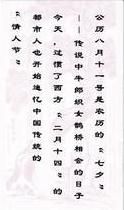 公历八月十一号是农历的“七夕”
——传说中牛郎织女鹊桥相会的日子
今天，过惯了西方“二月十四”的
都市人也开始追忆中国传统的
“情人节”